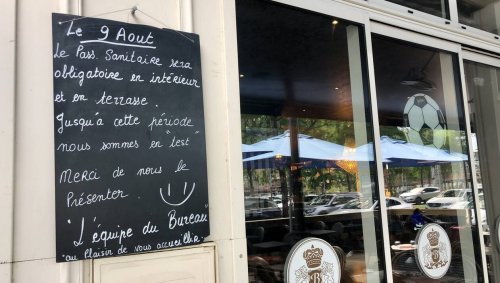 Le 9 Aout
Le Pass Sanitaire sera
obligatoire en intérieur
et en terrasse.
Jusqu'à cette période
nous sommes en "test"
Merci de nous le
Présenter.
"L'équipe du Bureau"
"au Plaisir de vous accueillir"
B
B